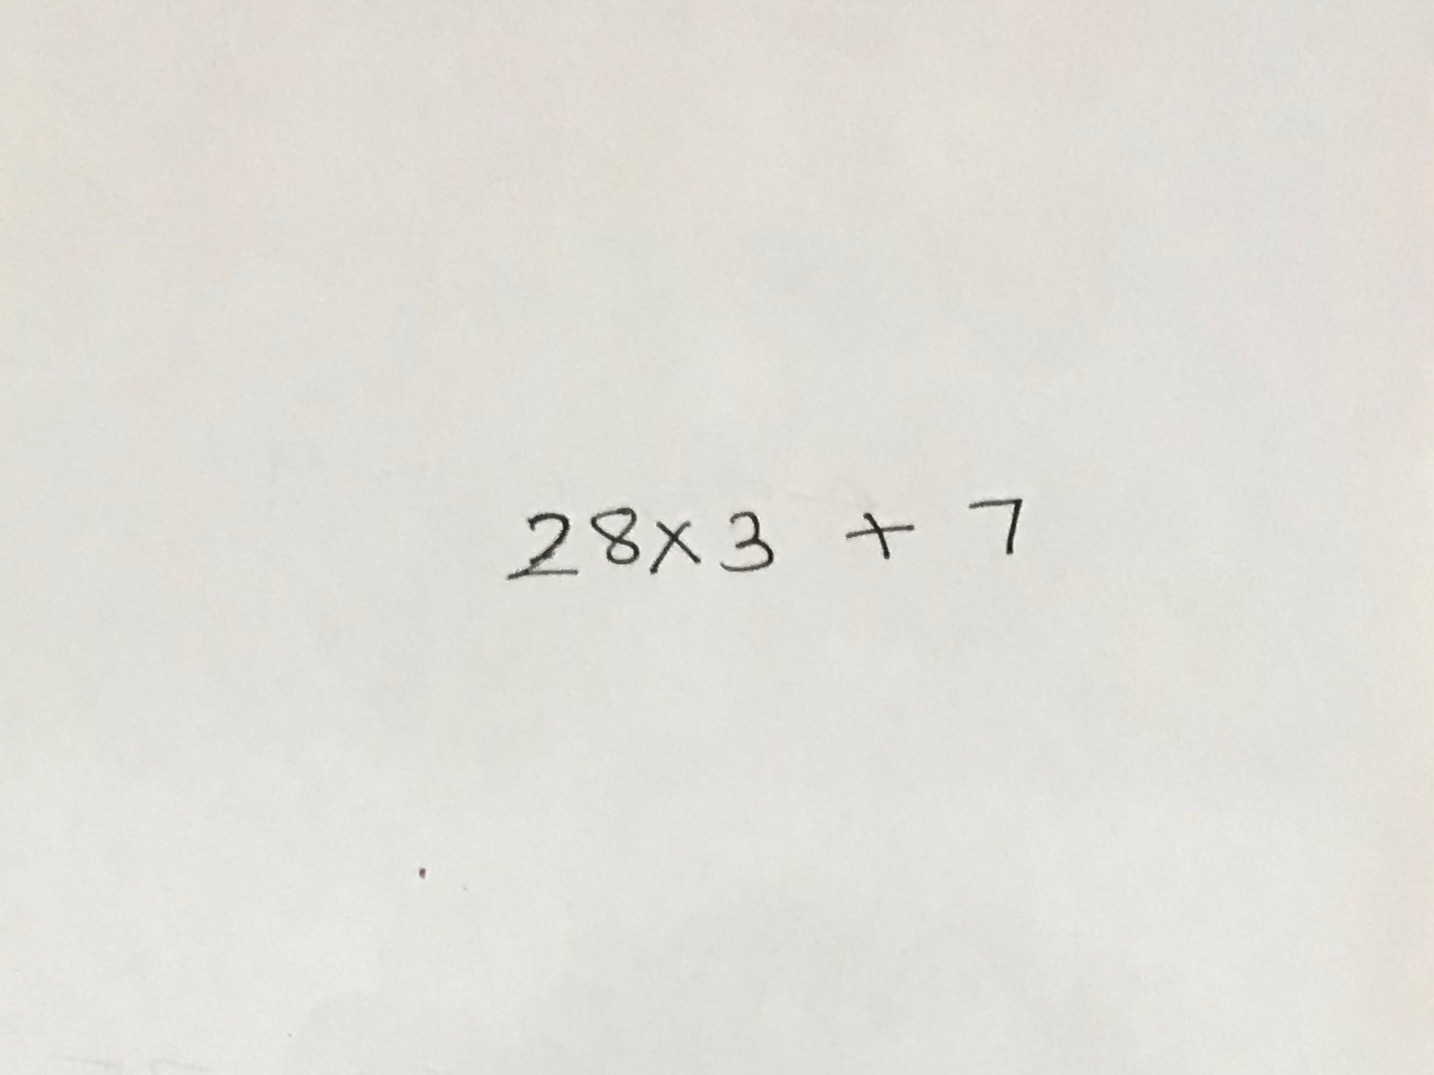 28×3 + 7